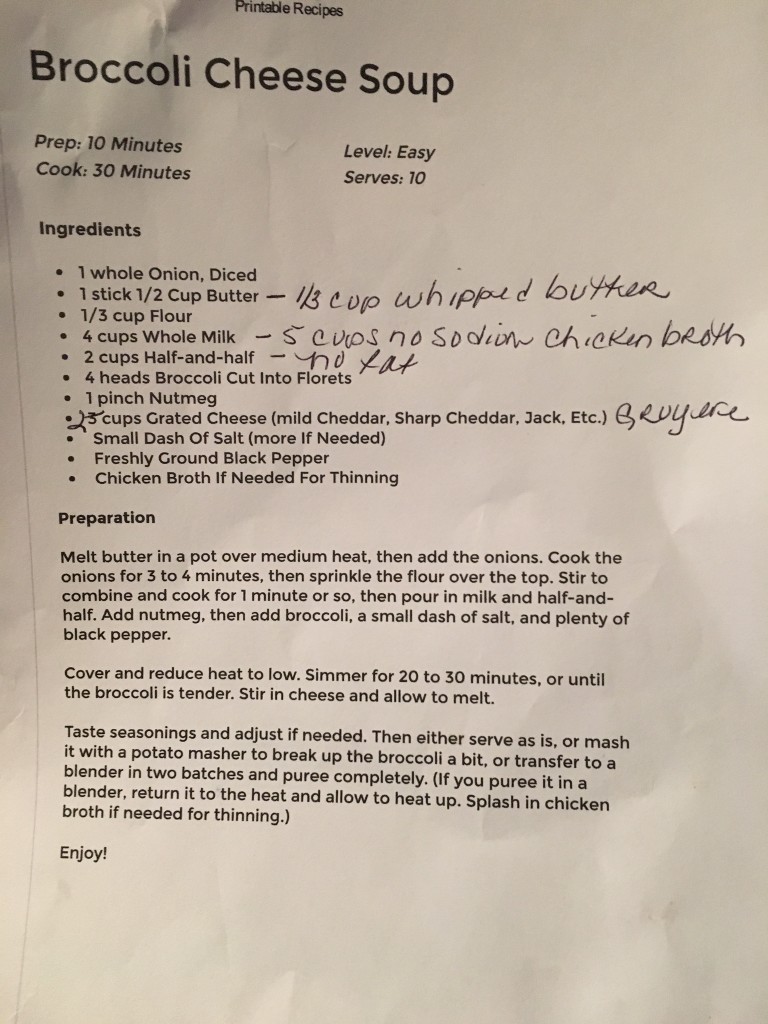 Printable Recipes
Broccoli Cheese Soup
Prep: 10 Minutes
Cook: 30 Minutes
Level: Easy
Serves: 10
Ingredients
• 1 whole Onion, Diced
• 1 stick 1/2 Cup Butter — 1/3 cup whipped butter
• 1/3 cup Flour
• 4 cups Whole Milk – 5 cups no sodium chicken broth
• 2 cups Half-and-half – no fat
• 4 heads Broccoli Cut Into Florets
• 1 pinch Nutmeg
• 2 3 cups Grated Cheese (mild Cheddar, Sharp Cheddar, Jack, Etc.) Gruyere
• Small Dash Of Salt (more If Needed)
• Freshly Ground Black Pepper
• Chicken Broth If Needed For Thinning
Preparation
Melt butter in a pot over medium heat, then add the onions. Cook the
onions for 3 to 4 minutes, then sprinkle the flour over the top. Stir to
combine and cook for 1 minute or so, then pour in milk and half-and-
half. Add nutmeg, then add broccoli, a small dash of salt, and plenty of
black pepper.
Cover and reduce heat to low. Simmer for 20 to 30 minutes, or until
the broccoli is tender. Stir in cheese and allow to melt.
Taste seasonings and adjust if needed. Then either serve as is, or mash
it with a potato masher to break up the broccoli a bit, or transfer to a
blender in two batches and puree completely. (If you puree it in a
blender, return it to the heat and allow to heat up. Splash in chicken
broth if needed for thinning.)
Enjoy!